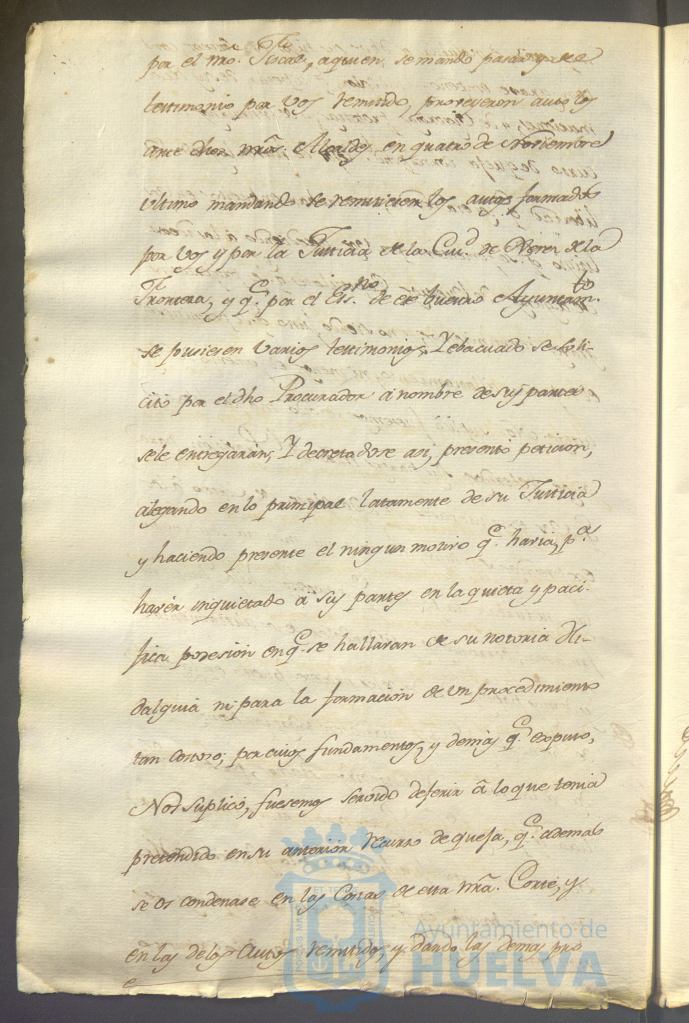 por el nro. Fiscal, aquien se mando pasar, y ese
testimonio por vos remitido, proveyeron auto los
ante dhos nrõs. Alcaldes en quatro de Noviembre
ultimo mandando se remitiesen los autos formados
por vos y por la Justicia de la Ciud. de Xerez de la
Frontera, y q.e por el Ess.no de ese nuestro Ayuntam.to
se pusiesen varios testimonios, Y ebacuado se soli-
citó por el dho Procurador a nombre de sus partes
se le entregaran, Y decretadose asi, presentó peticion,
alegando en lo principal latamente de su Justicia
y haciendo presente el ningun motivo q.e havia, p.a
haver inquietado a sus partes en la quieta y paci-
fica posesion en q.e se hallaran de su notoria Hi-
dalguia ni para la formacion de un procedimiento
tan costoso; por cuios fundamentos, y demas q.e expuso,
Nos suplicó, fuesemos servido deferir á lo que tenia
pretendido en su anterior recurso de queja, q.e ademas
se os condenase en las Costas de esta nrã. Corte, y
en las de los Autos remitidos, y dando las demas pro
Ayuntamiento de
HUELVA